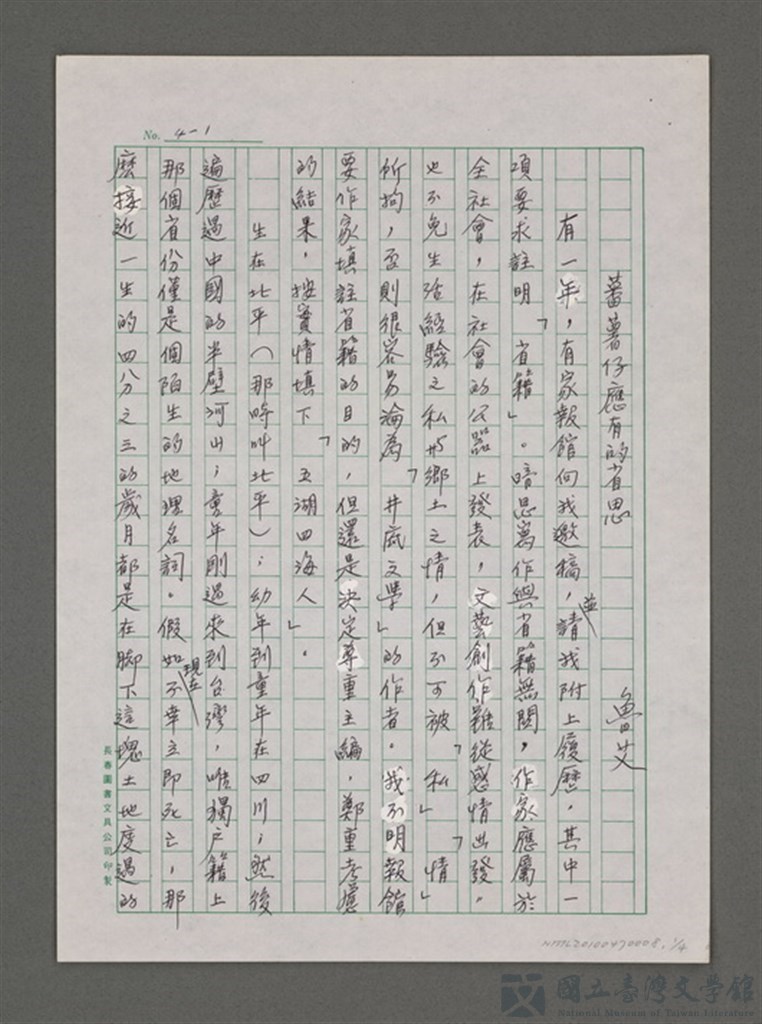 No. 4-1
蕃薯仔應有的省思 魯艾
有一年，有家報館向我邀稿，並請我附上履歷，其中一
項要求註明「省籍」。暗思寫作與省籍無關，作家應屬於
全社會，在社會的公器上發表，文藝創作雖從感情出發，
也不免生活經驗之私與鄉土之情，但不可被「私」「情」
所拘，否則很容易淪為「井底文學」的作者。我不明報館
要作家填註省籍的目的，但還是決定尊重主編，鄭重考慮
的結果，按實情填下「五湖四海人」。
生在北平（那時叫北平）；幼年到童年在四川；然後
遍歷過中國的半壁河山；童年剛過來到台灣，唯獨戶籍上
那個省份僅是個陌生的地理名詞。假如現在不幸立即死亡，那
麼接近一生的四分之三的歲月都是在腳下這塊土地度過的
長春圖書文具公司印製
NMTL20100470008, 1/4
國立臺灣文學館
National Museum of Taiwan Literature